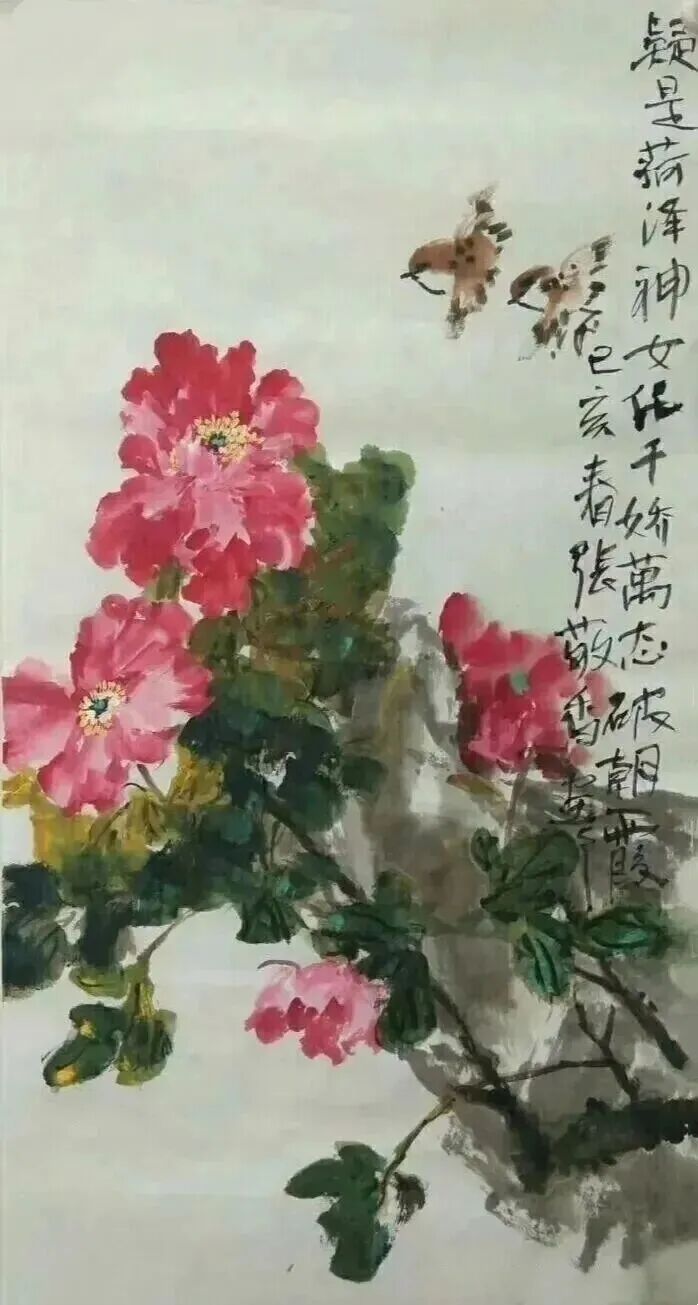 疑是荷泽神女作千娇萬态破朝霞
己亥春張敬香畫